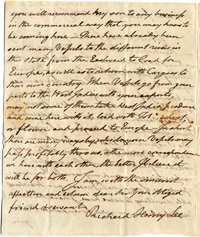 you will recommend my son to any business
in the commercial way that you may have to
be coming here — There have already been
sent many Vessels to the different rivers in
this state from the Eastward to Load for
Europe, as well as to return with Cargoes to
their own country. When Vessels go from your
ports to the West Indies with your exports
may not some of them take West India produce
and come here with it, load with Tob.
or flour and proceed to Europe
there are many ways by which our
may profitably the more
we have with each other the better
will be for both. I am with the sincerest
affection and esteem dear Sir Your obliged
friend & servant
Richard Henry Lee